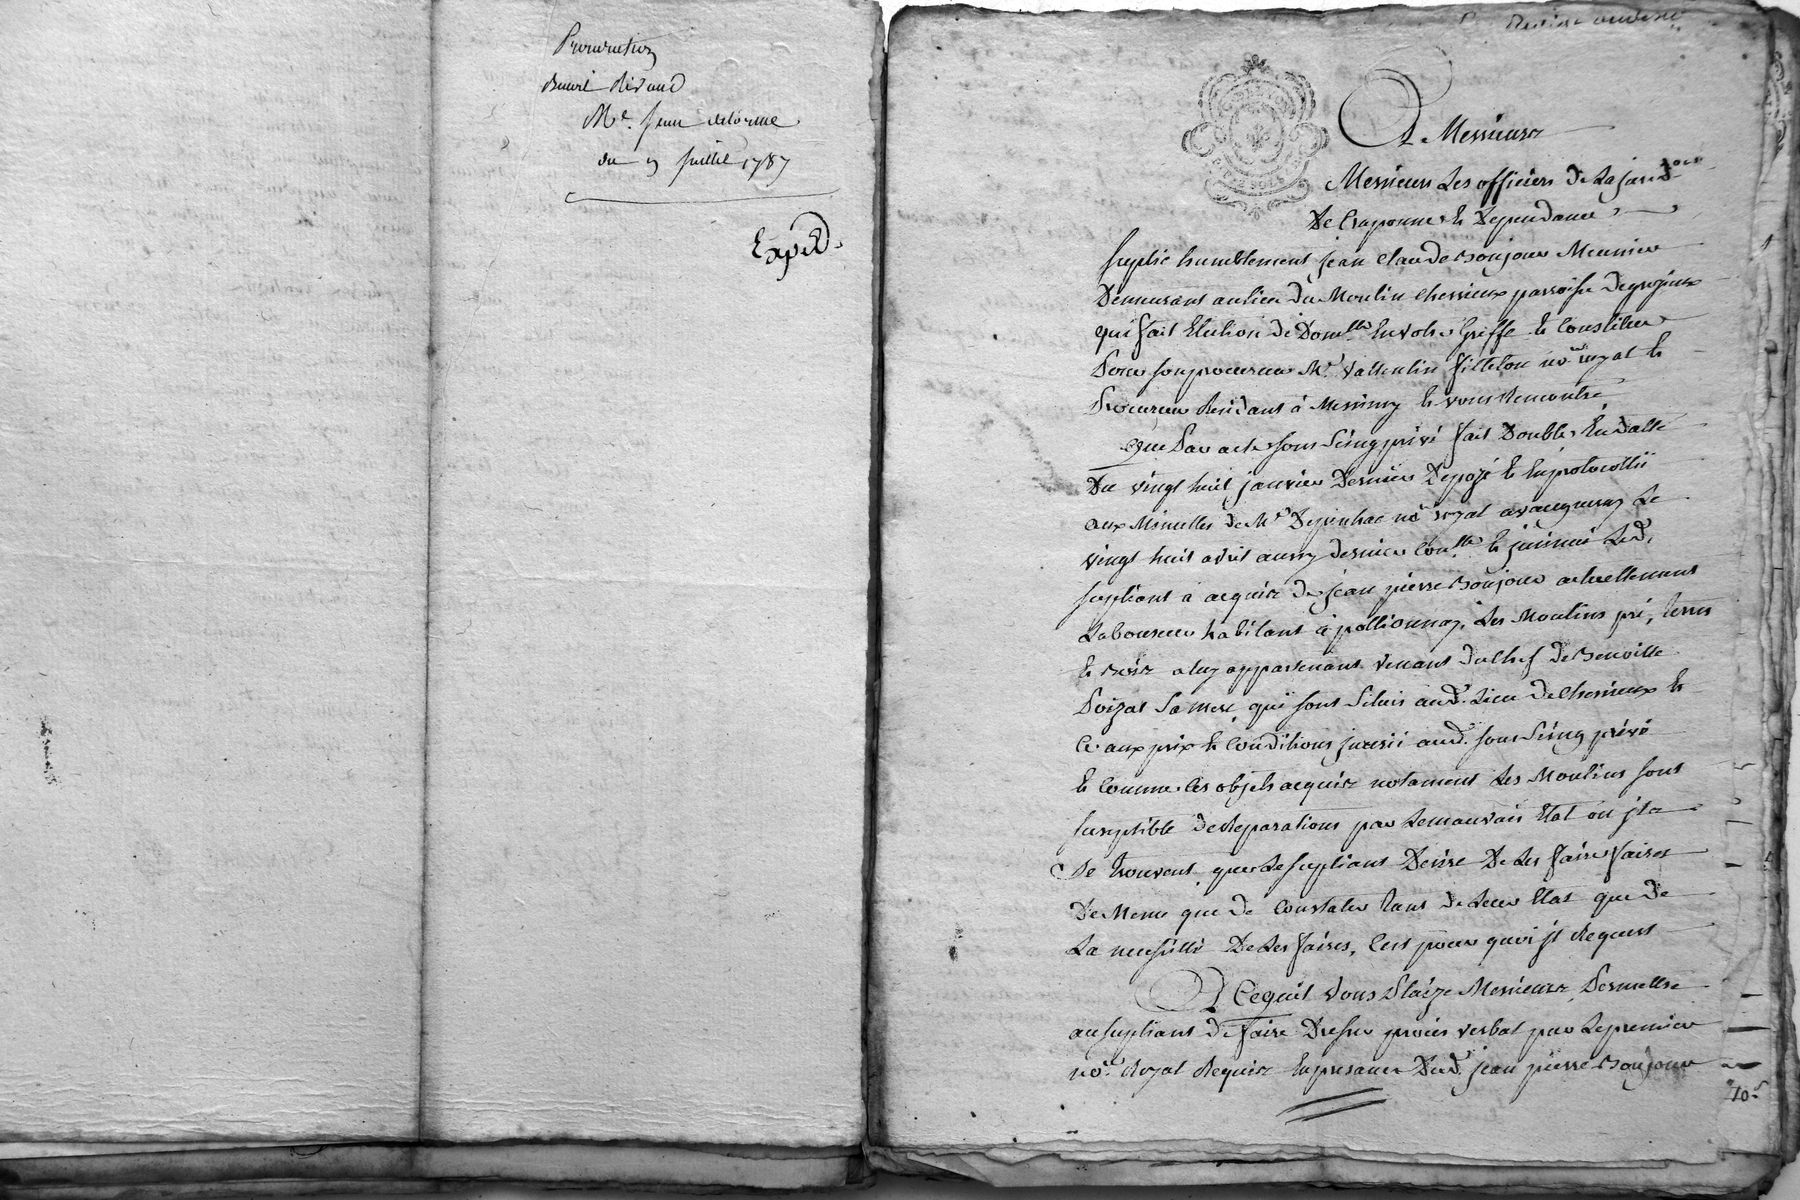 Procuration
Benoit Rivaud
Me. Jean delorme
du 9 Juillet 1787
Exped.
A Messieurs
Messieurs Les officiers de La jurid.on
De Craponne & Dependance
suplie humblement jean claude Bonjour Meunier
Demeurant au lieu du Moulin chersieux parroisse de grezieux
qui fait Election de Dom.lle En votre Greffe & Constitue
Pour son procureur Me. Vallentin fillion no.re royal &
Procureur Residant à Messimy & vous Remontre
Que Par acte sous seing privé fait Double En datte
Du vingt huit janvier Dernier Depozé & Enprotocollé
aux Minuttes de Me Depinhac no.re royal a vaugneray Le
vingt huit avril aussy dernier Con.llé & insinué Led.
supliant a acquis de jean pierre Bonjour actuellement
Laboureur habitant à pollionnay, Les Moulins pré, terres
& autres a luy appartenant venant du chef de Benoitte
Poizat Sa mere, qui sont situés aud. Lieu de chersieux &
Ce aux prix & Conditions inseréé aud. sous seing privé
& Comme Les objets acquis notament Les Moulins sont
susceptible de Reparations par Le mauvais Etat où ils
Se trouvent, que Le supliant Desire De Les faire faires
De Meme que de Constater tant de Leur Etat que de
La necessitté De Les faires, C'est pour quoi il Requert
A Ce qu'il vous Plaize Messieurs, Permettre
au supliant De faire Dresser procès verbal par Le premier
no.re Royal Requis En presance Dud. jean pierre Bonjour
70.